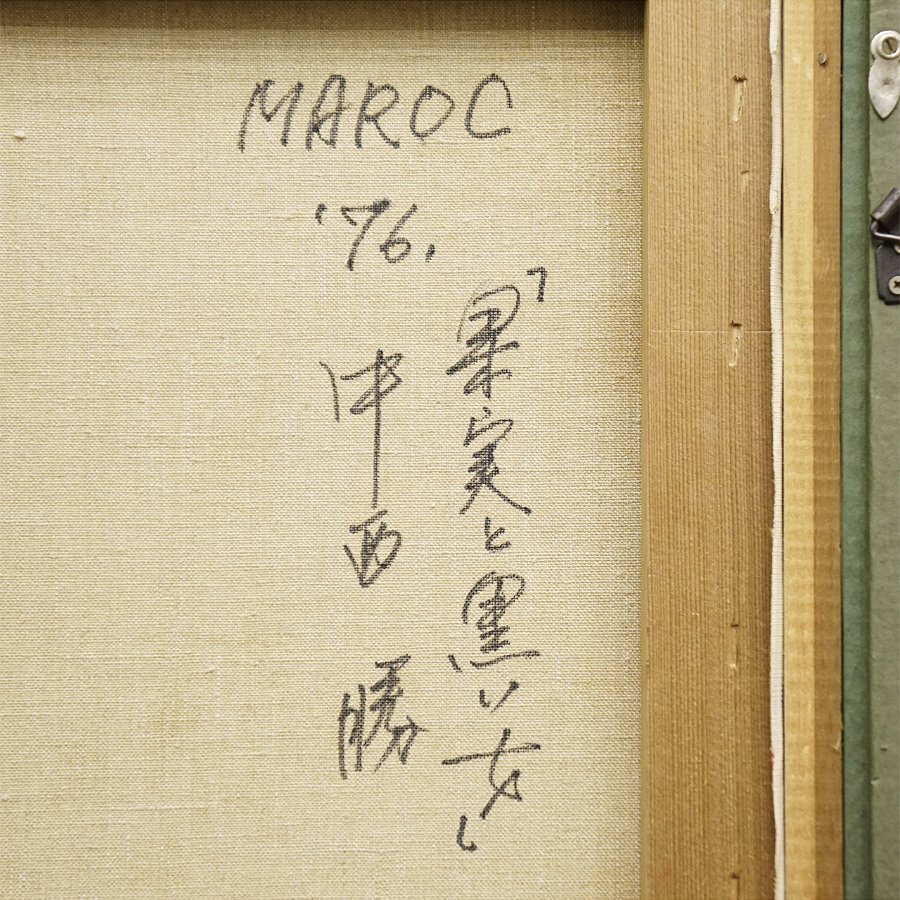 MAROC
'76.
「果実と黒い女」
中西勝